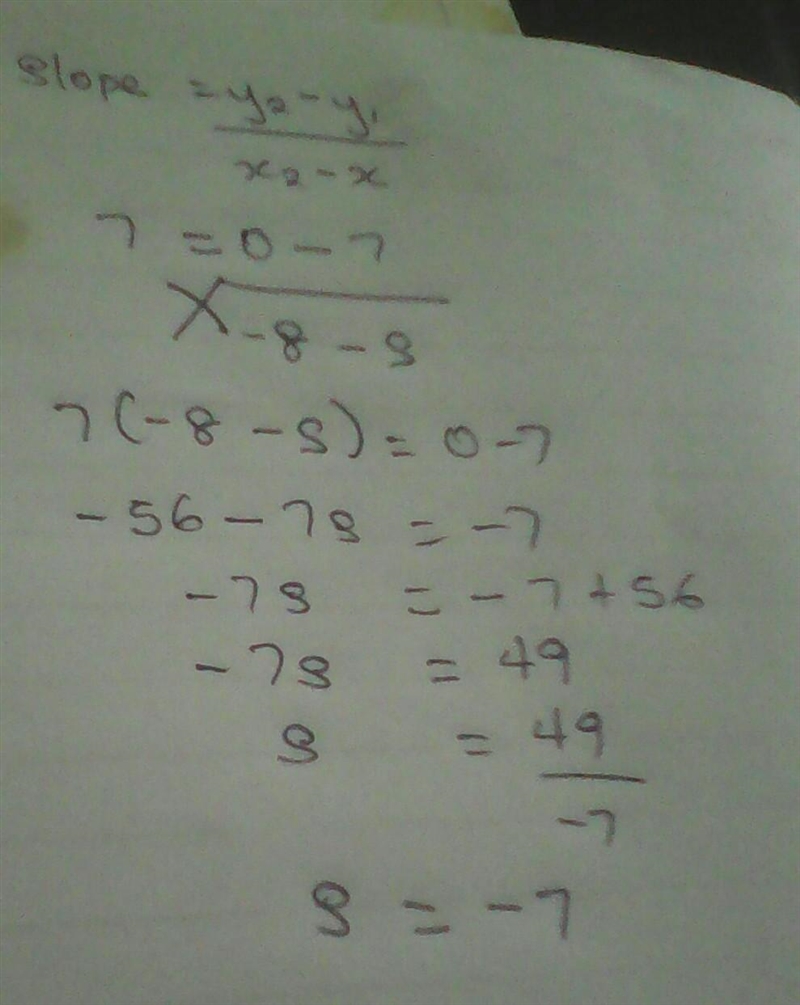 Slope = y₂ - y₁
x₂ - x
7 = 0 - 7
-8 - s
7(-8 - s) = 0 - 7
-56 - 7s = -7
-7s = -7 + 56
-7s = 49
s = 49
-7
s = -7